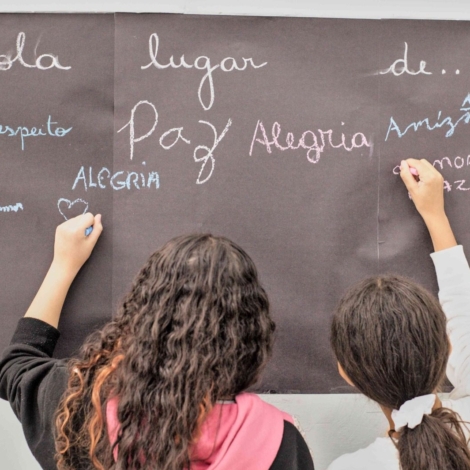 ola lugar de...
espeito Paz Alegria Amiza
ALEGRIA mor
az